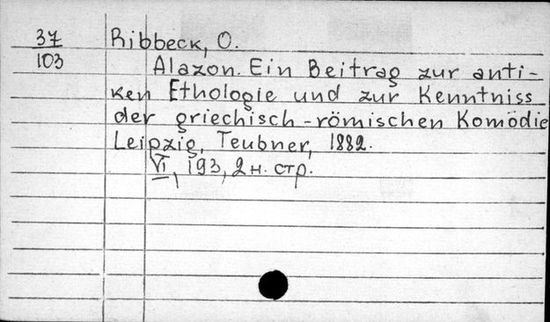 37
103
Ribbeck, O.
Alazon. Ein Beitrag zur anti-
ken Ethologie und zur Kenntniss
der griechisch-römischen Komödie
Leipzig, Teubner, 1882.
VI, 193, 2 н. стр.